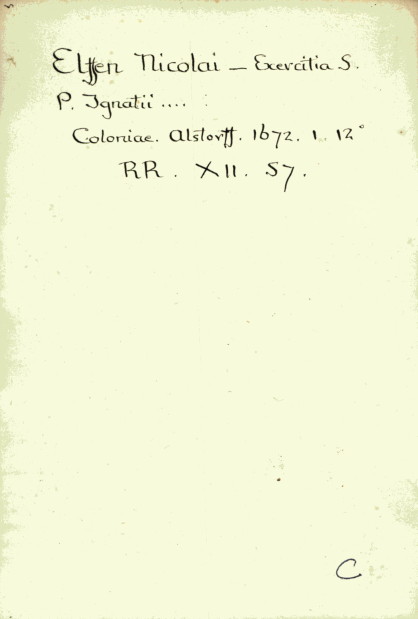 Elffen Nicolai – Exercitia S.
P. Ignatii ....
Coloniae. Alstorff. 1672. 1. 12°
RR. XII. 57.
C